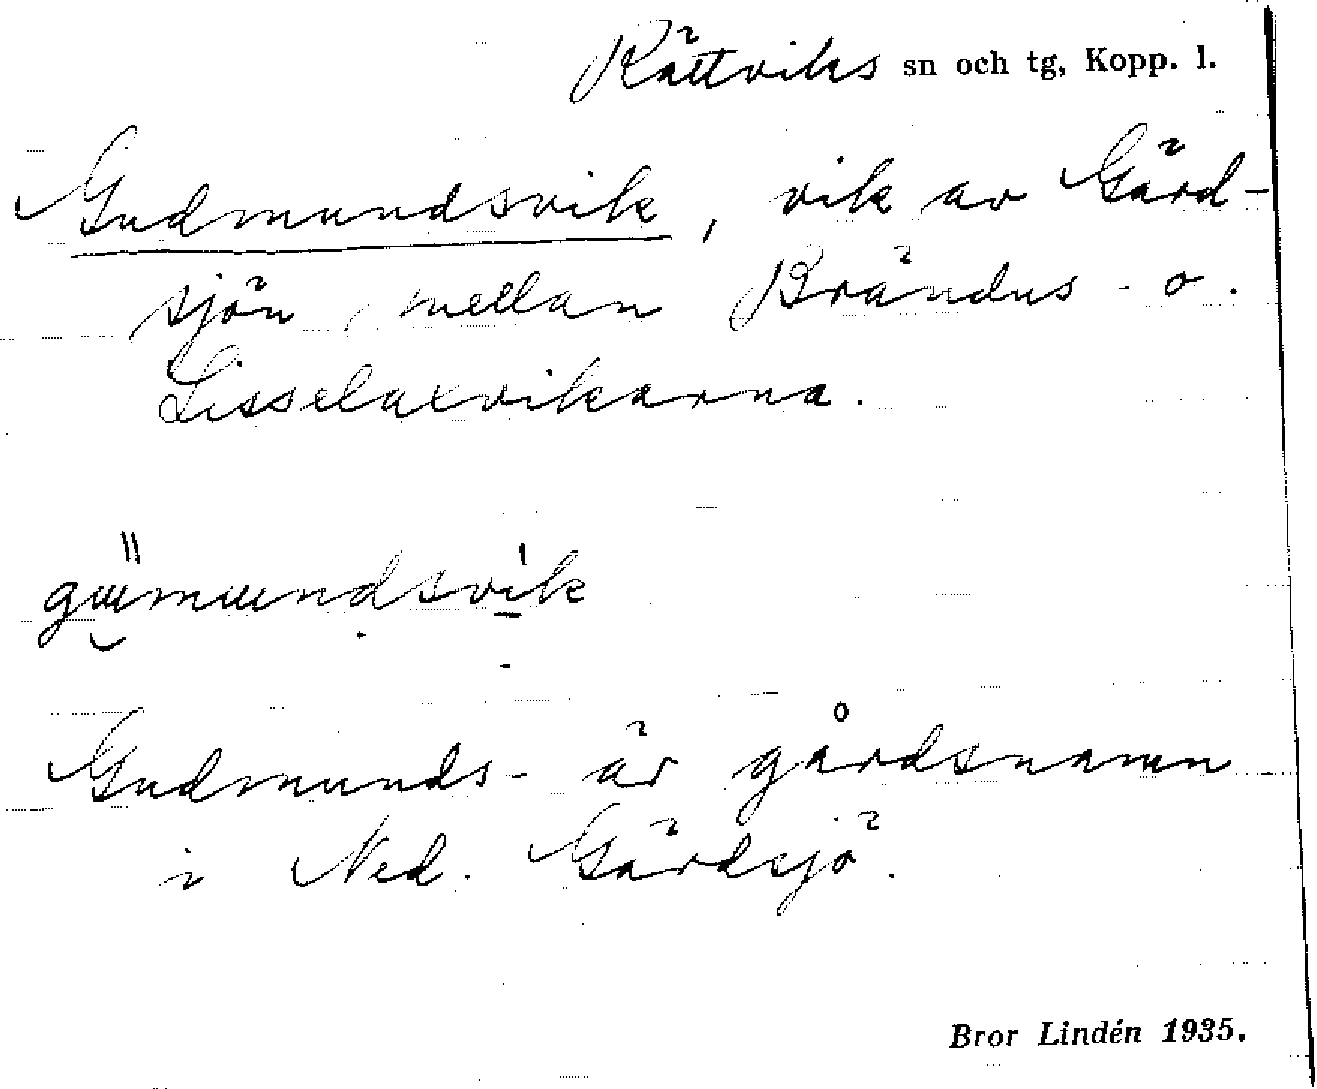 Rättviks sn och tg, Kopp. l.
Gudmundsvik, vik av Gärd-
sjön, mellan Brändus- o.
Lisselaxvikarna.
gɯmɯndsvik
Gudmunds- är gårdsnamn
i Ned. Gärdsjö.
Bror Lindén 1935.